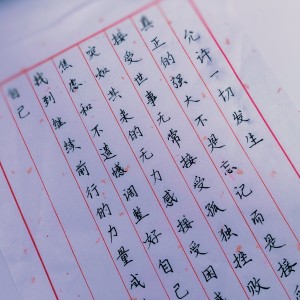 允许一切发生
真正的强大不是忘记而是接
接受世事无常接受孤独挫败
突如其来的无力感接受困
焦虑和不遗憾调整好自己
找到继续前行的力量成
自己